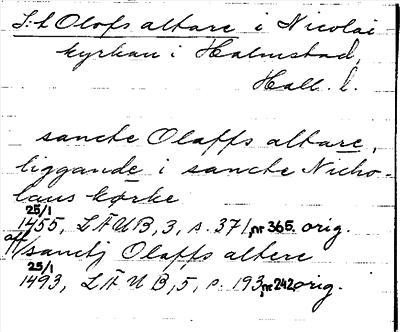 S:t Olofs altare i Nicolai
kyrkan i Halmstad,
Hall. l.
sancte Olaffs altare,
liggande i sancte Nicho-
laus kørke
25/1
1455, LÄUB, 3, s. 371, nr 365. orig.
aff sanctj Olaffs altere
25/1
1493, LÄUB, 5, s. 193, nr 242 orig.